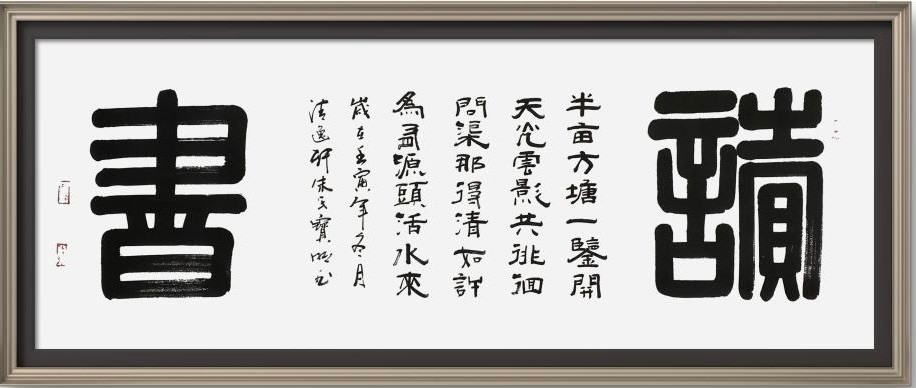 讀
半亩方塘一鑒開
天光雲影共徘徊
問渠那得清如許
為有源頭活水來
歲在壬寅年冬月
清逸軒朱寶明
書